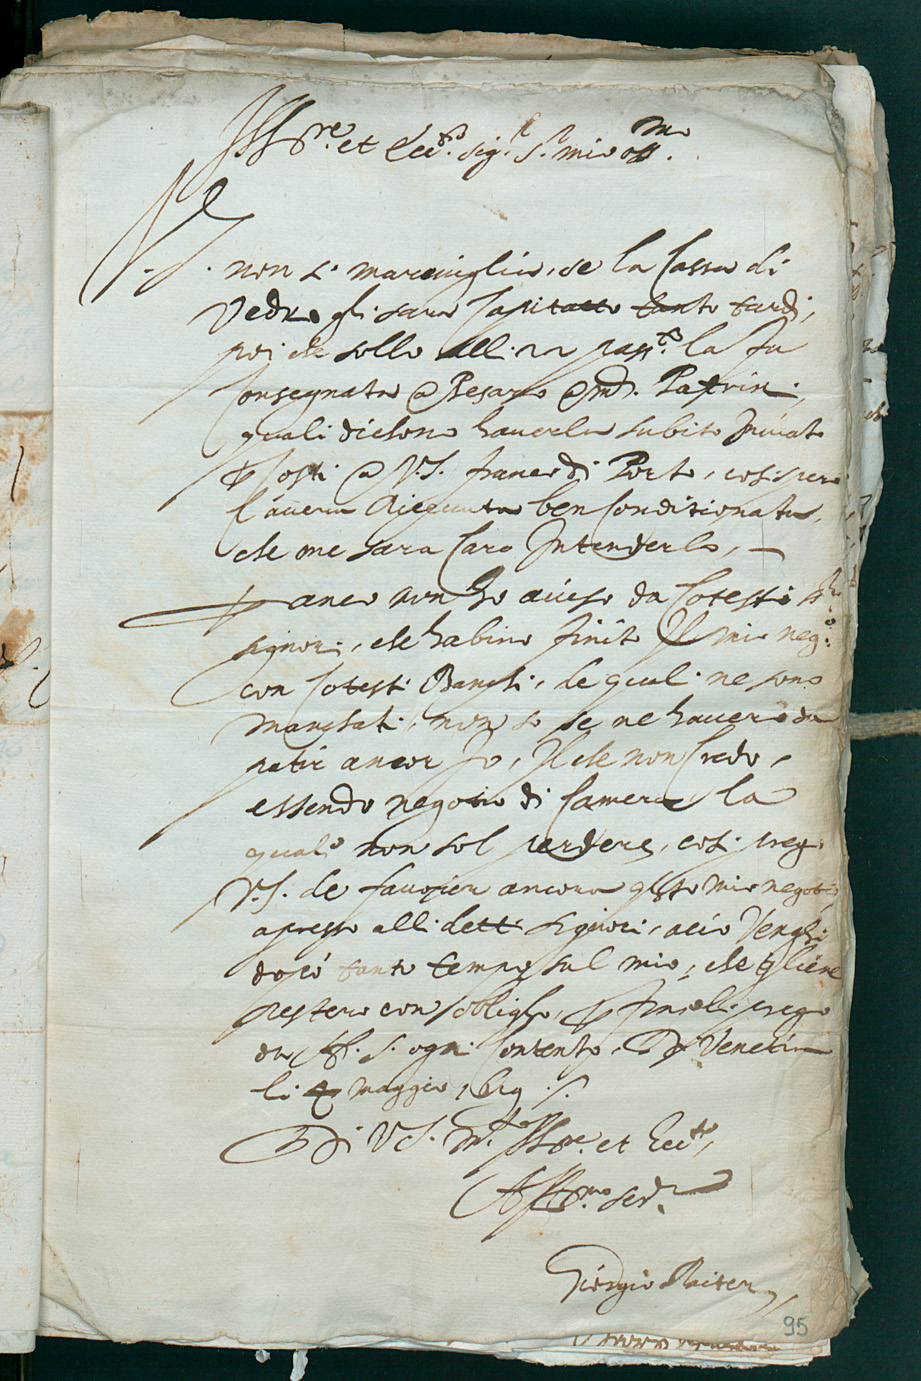 Ill.re et Ecc.te Sig.r S.r mio oss.mo
V. S. non si maraviglia, se la Cassa di
Vedro gli sara Capitatto tanto tardi,
poi che sollo alli 22 pass.to la fu
Consegnata a Pesaro
quali dicono haverla subito inviata
Costi a V.S. franca di Porto, cosi spero
l'avera Ricevuta ben Conditionata,
che me sara Caro Intenderlo, —
anco non ho aviso da Cotesti
signori, che habino finito Il mio neg.o
con Cotesti Banchi, le quali ne sono
Manchati, non so se ne havero da
patir ancor Io, Il che non Credo,
essendo negotio di Camera, la
quale non sol perdere, cosi prego
V.S. de favorier ancora q.sto mio negotio
apresso alli detti signori, acio Venghi
dopo tanto tempo sul mio, che gliene
restero con obligo,
da V. S. ogni Contento. Di Venetia
li maggio 1619
Di V S. M.to Ill.re et Ecc.te,
Aff.mo ser.r
Giorgio Raiter
95